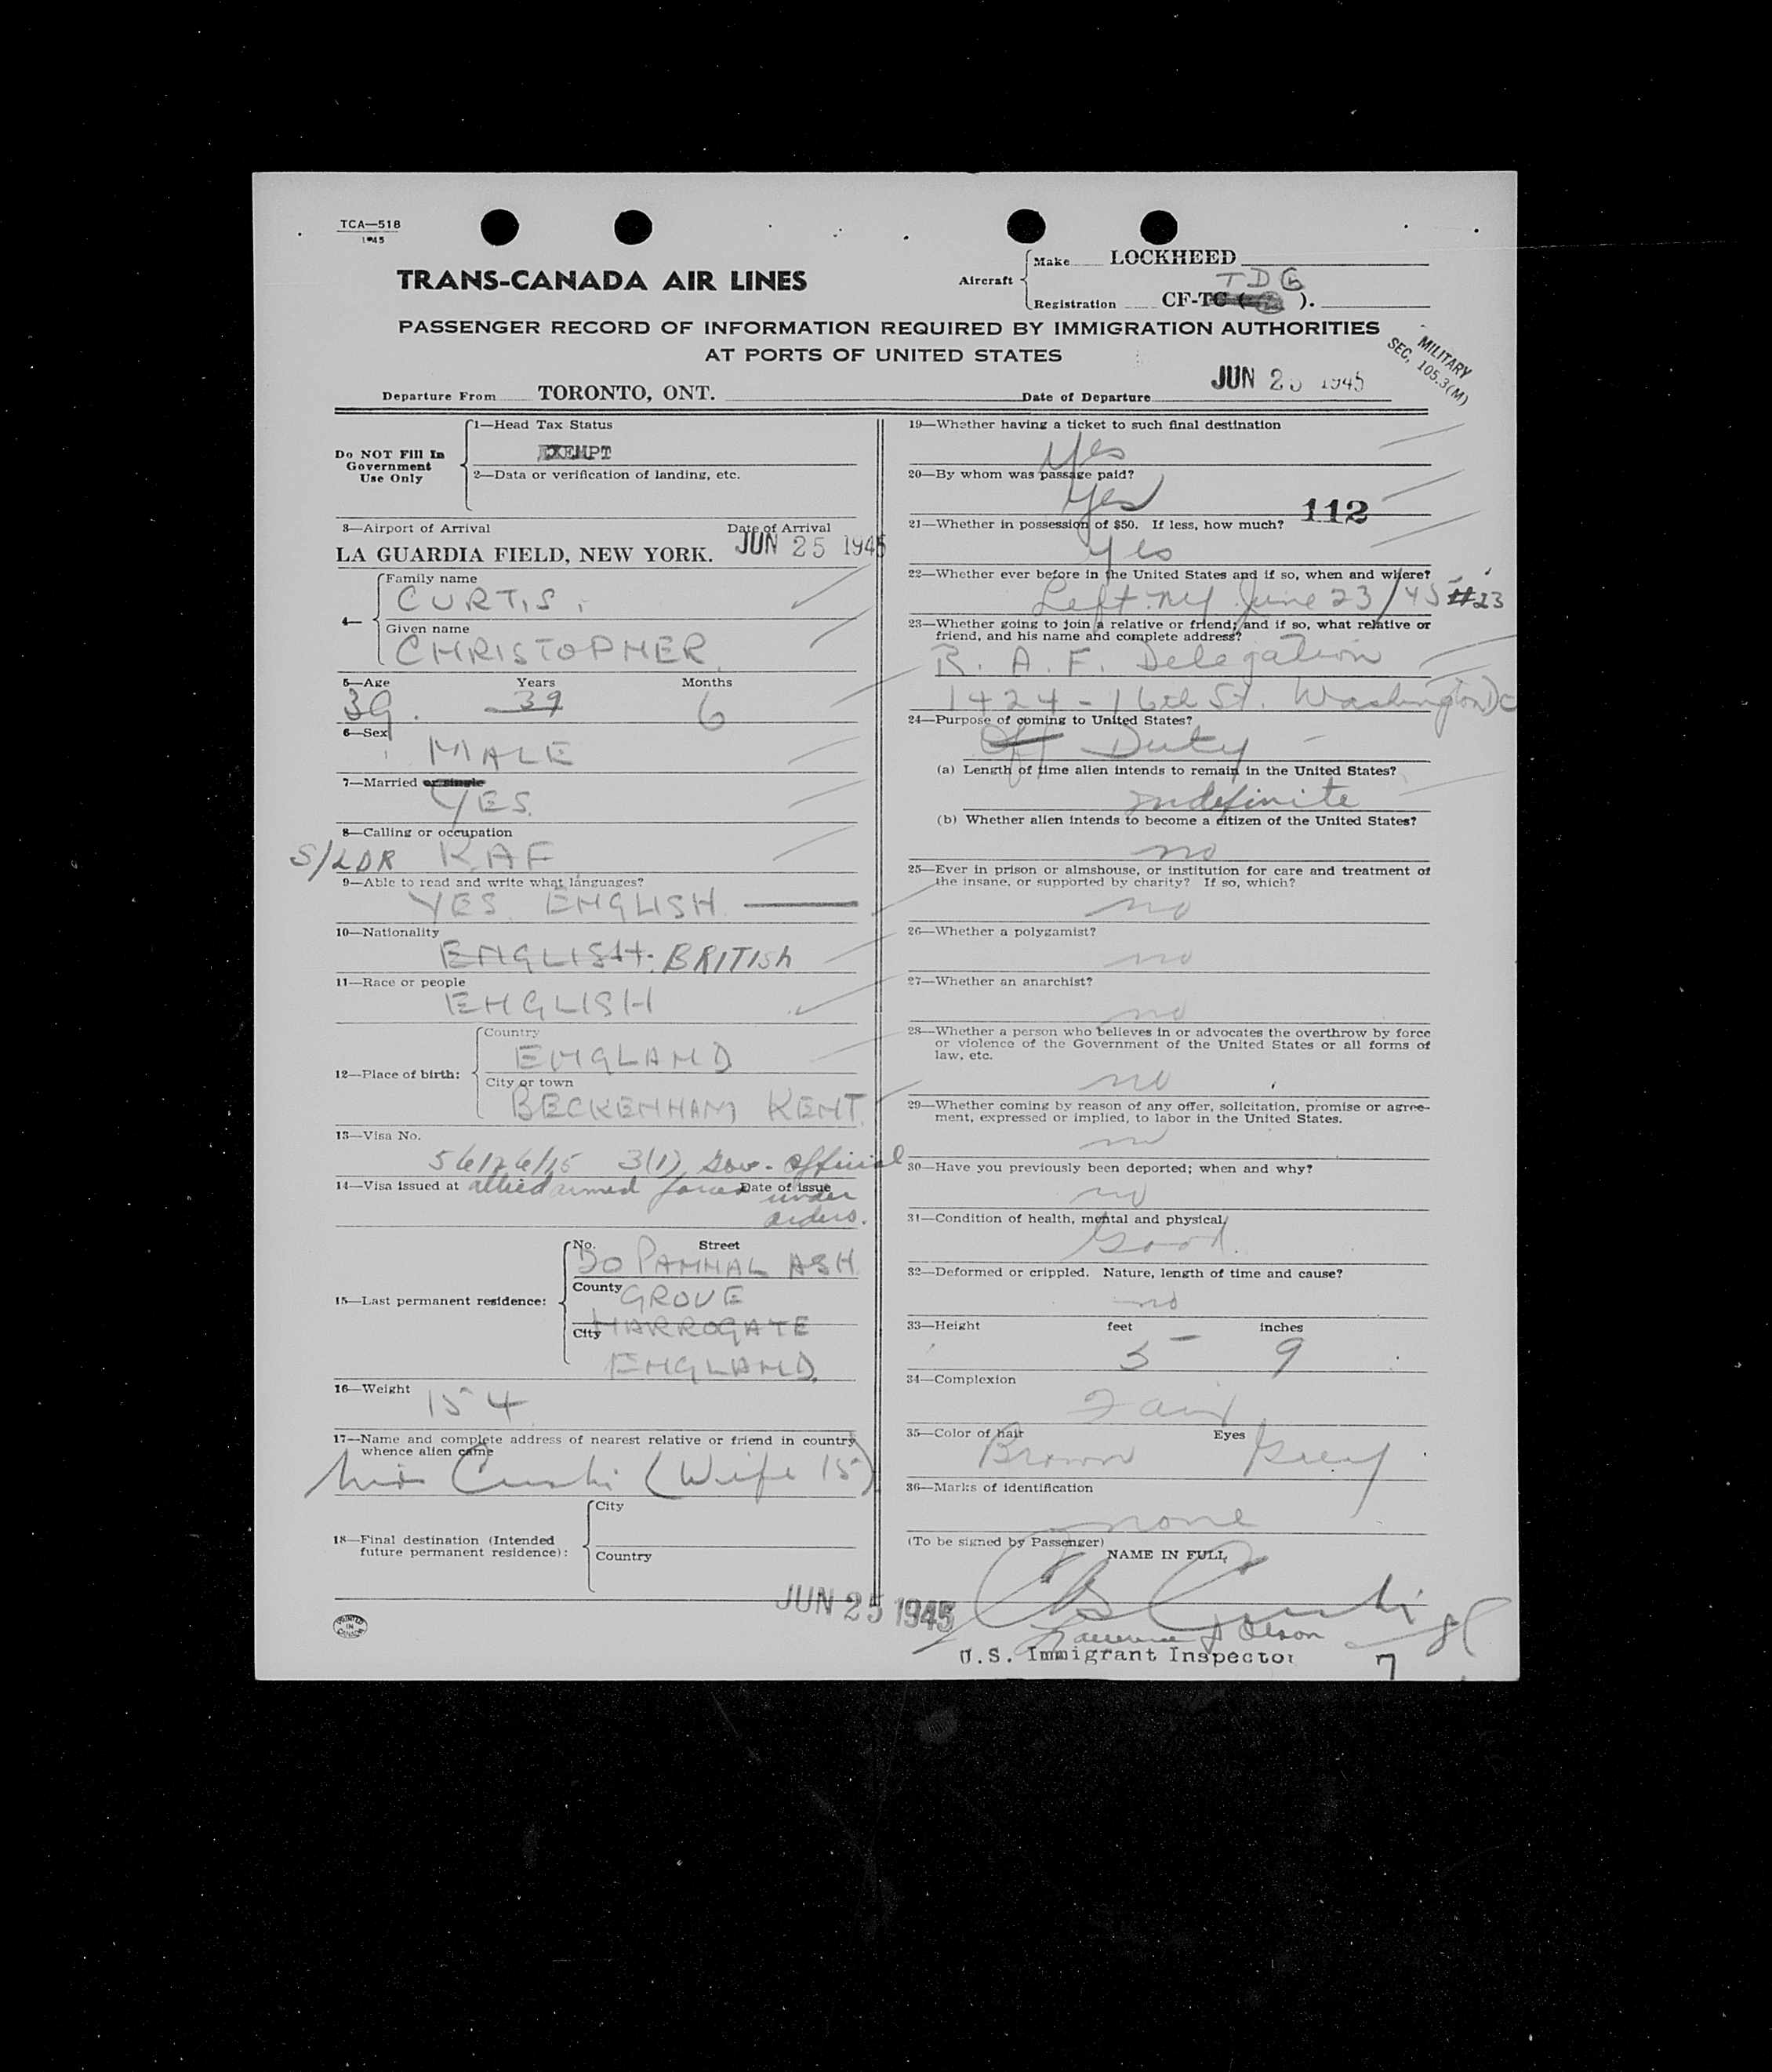 TCA—518
1945
TRANS-CANADA AIR LINES
Aircraft
Make LOCKHEED
TDG
Registration CF-TC ( ).
PASSENGER RECORD OF INFORMATION REQUIRED BY IMMIGRATION AUTHORITIES
AT PORTS OF UNITED STATES
MILITARY
SEC. 105.3(M)
Departure From TORONTO, ONT.
Date of Departure JUN 25 1945
Do NOT Fill In
Government
Use Only
1—Head Tax Status
EXEMPT
2—Data or verification of landing, etc.
3—Airport of Arrival Date of Arrival
LA GUARDIA FIELD, NEW YORK. JUN 25 1945
4—
Family name
CURTIS
Given name
CHRISTOPHER
5—Age Years Months
39. 39 6
6—Sex
MALE
7—Married or single
YES.
8—Calling or occupation
S/LDR RAF
9—Able to read and write what languages?
YES ENGLISH
10—Nationality
ENGLISH. BRITISH
11—Race or people
ENGLISH
12—Place of birth:
Country
ENGLAND
City or town
BECKENHAM KENT
13—Visa No.
3(1), Gov. official
14—Visa issued at allied armed forces Date of issue
under
orders.
15—Last permanent residence:
No. Street
30 PANNAL ASH
County GROVE
City HARROGATE
ENGLAND.
16—Weight
154
17—Name and complete address of nearest relative or friend in country
whence alien came
Mrs Curtis (Wife 15)
18—Final destination (Intended
future permanent residence):
City
Country
JUN 25 1945
PRINTED
IN
CANADA
19—Whether having a ticket to such final destination
Yes
20—By whom was passage paid?
Yes
112
21—Whether in possession of $50. If less, how much?
Yes
22—Whether ever before in the United States and if so, when and where?
Left NY June 23/45 #23
23—Whether going to join a relative or friend; and if so, what relative or
friend, and his name and complete address?
R. A. F. Delegation
1424 - 16th St. Washington DC
24—Purpose of coming to United States?
Off Duty
(a) Length of time alien intends to remain in the United States?
indefinite
(b) Whether alien intends to become a citizen of the United States?
no
25—Ever in prison or almshouse, or institution for care and treatment of
the insane, or supported by charity? If so, which?
no
26—Whether a polygamist?
no
27—Whether an anarchist?
no
28—Whether a person who believes in or advocates the overthrow by force
or violence of the Government of the United States or all forms of
law, etc.
no
29—Whether coming by reason of any offer, solicitation, promise or agree-
ment, expressed or implied, to labor in the United States.
no
30—Have you previously been deported; when and why?
no
31—Condition of health, mental and physical
Good.
32—Deformed or crippled. Nature, length of time and cause?
no
33—Height feet inches
5 9
34—Complexion
Fair
35—Color of hair Eyes
Brown Grey
36—Marks of identification
none
(To be signed by Passenger)
NAME IN FULL
Curtis
Olson
U.S. Immigrant Inspector
7